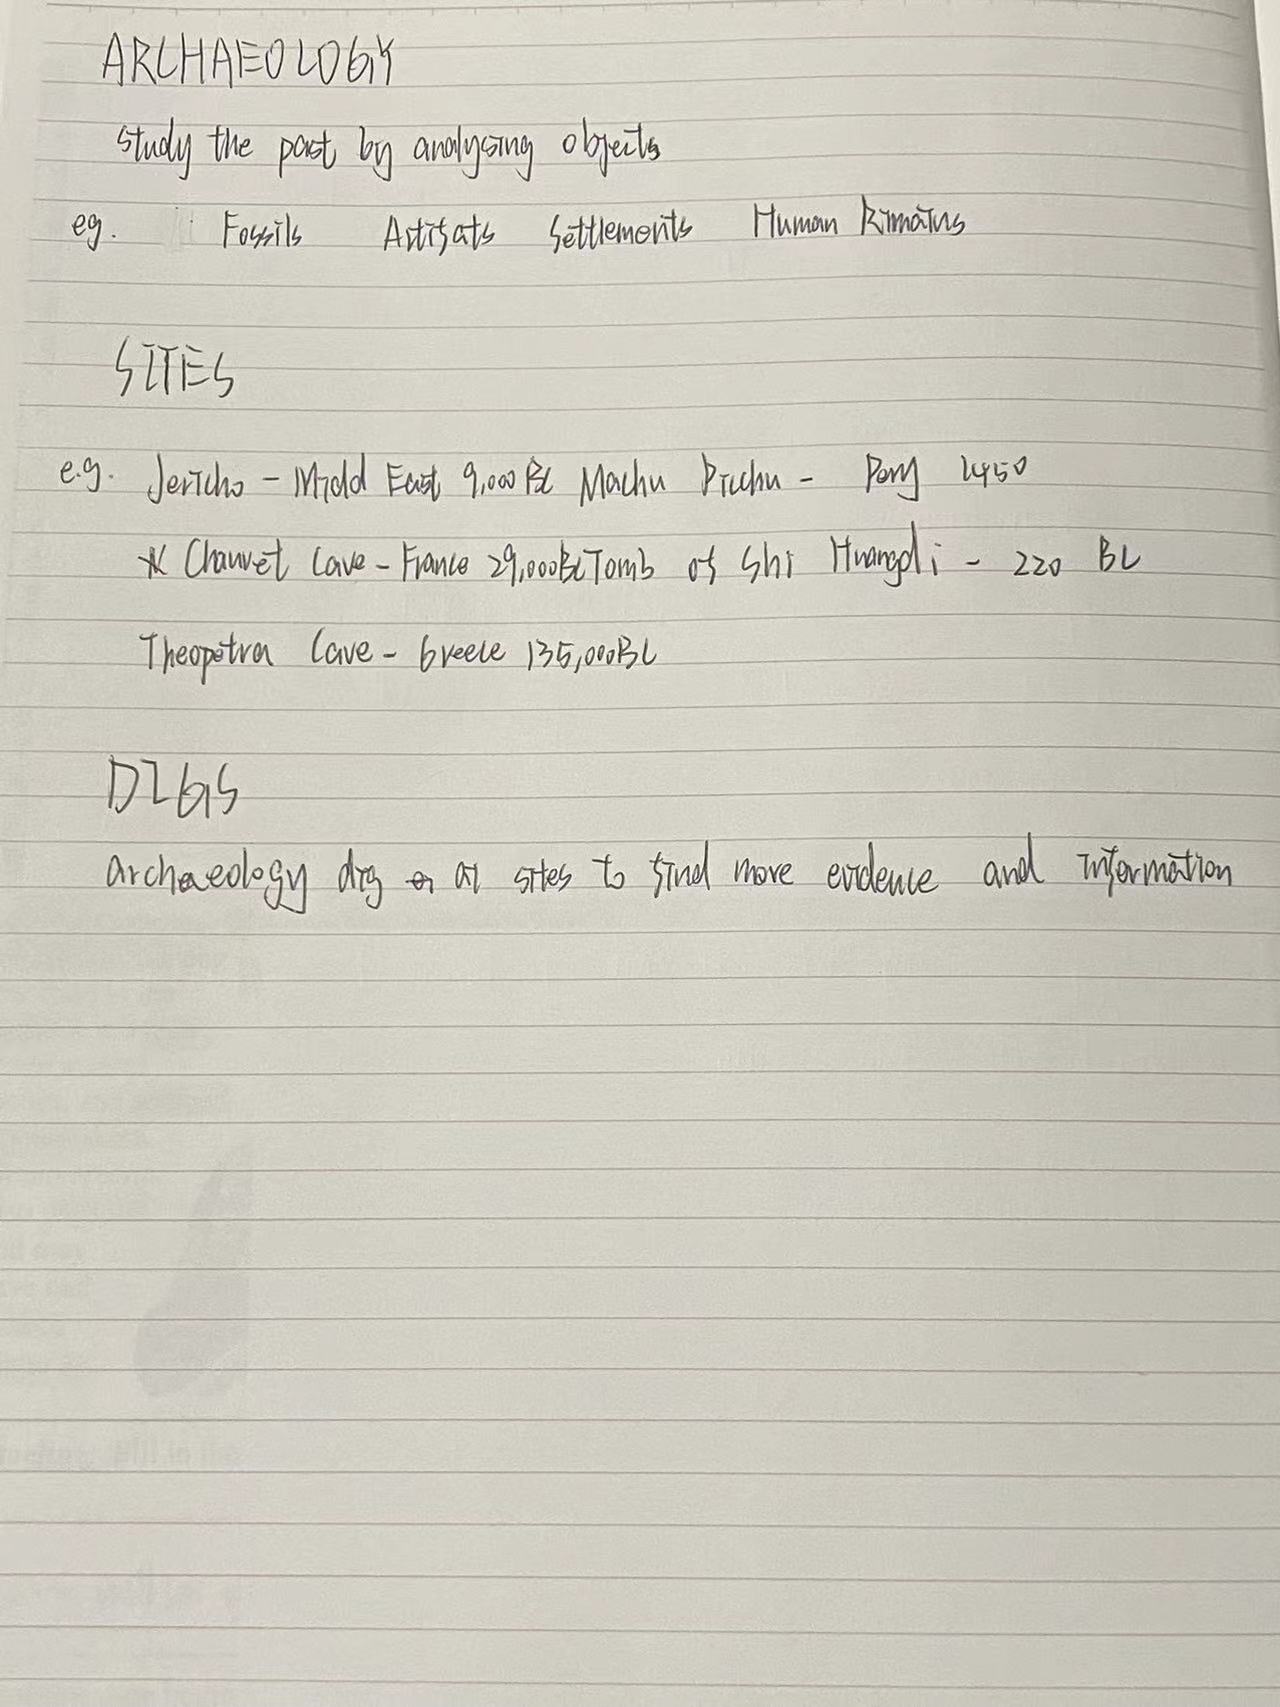 ARCHAEOLOGY
study the past by analysing objects
eg. Fossils Artifats Settlements Human Rimains
SITES
e.g. Jericho - Midd East 9,000 BC Machu Picchu - 1450
* Chauvet Cave - France 29,000BC Tomb of Shi Huangdi - 220 BC
Theopetra Cave - Greece 135,000BC
DIGS
archaeology dig at sites to find more evidence and information